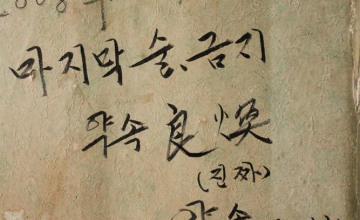 2008
마지막 술, 금지
약속 良煥
(진짜)
약속